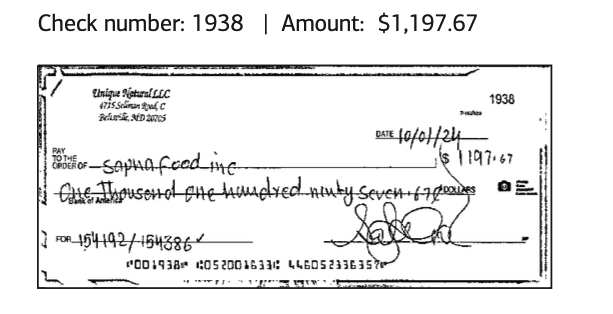 Check number: 1938 | Amount: $1,197.67
Unique Natural LLC
1938
4715 Selman Road, C
Beltsville, MD 20705
DATE 10/01/24
PAY
TO THE
ORDER OF Sapna food inc
$ 1197.67
One Thousand one hundred ninty seven. 67¢ DOLLARS
Bank of America
FOR 154192/154386 ✓
⑈001938⑈ ⑆052001633⑆ 446052336357⑈